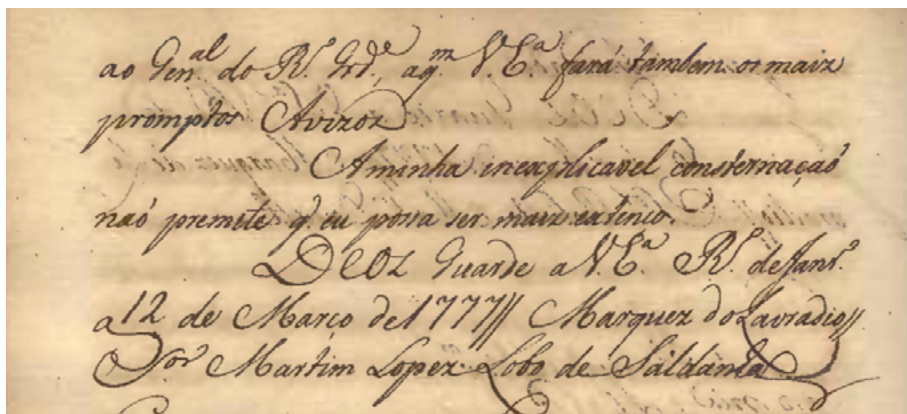 ao Gen.al do R.o Gr.de, aq.m V.Ex.a fará tambem os maiz
promptos Avizoz
A minha inexplicavel consternaçaõ
naõ premete q. eu possa ser maiz extenco.
Deoz Guarde a V.Ex.a R.o de Janr.o
a 12 de Março de 1777 // Marquez do Lavradio //
S.or Martim Lopez Lobo de Saldanha